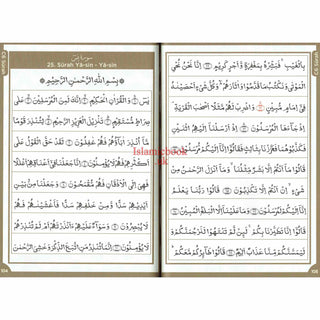 سورة يس
25. Sūrah Yā-sīn - Yā-sīn
بِسْمِ اللّٰهِ الرَّحْمٰنِ الرَّحِيْمِ
يٰسٓ ۝ وَالْقُرْاٰنِ الْحَكِيْمِ ۝ اِنَّكَ لَمِنَ الْمُرْسَلِيْنَ ۝ عَلٰى
صِرَاطٍ مُّسْتَقِيْمٍ ۝ تَنْزِيْلَ الْعَزِيْزِ الرَّحِيْمِ ۝ لِتُنْذِرَ قَوْمًا
مَّاۤ اُنْذِرَ اٰبَآؤُهُمْ فَهُمْ غٰفِلُوْنَ ۝ لَقَدْ حَقَّ الْقَوْلُ عَلٰۤى
اَكْثَرِهِمْ فَهُمْ لَا يُؤْمِنُوْنَ ۝ اِنَّا جَعَلْنَا فِيْۤ اَعْنَاقِهِمْ اَغْلٰلًا
فَهِيَ اِلَى الْاَذْقَانِ فَهُمْ مُّقْمَحُوْنَ ۝ وَجَعَلْنَا مِنْۢ بَيْنِ
اَيْدِيْهِمْ سَدًّا وَّمِنْ خَلْفِهِمْ سَدًّا فَاَغْشَيْنٰهُمْ فَهُمْ
لَا يُبْصِرُوْنَ ۝ وَسَوَآءٌ عَلَيْهِمْ ءَاَنْذَرْتَهُمْ اَمْ لَمْ تُنْذِرْهُمْ
لَا يُؤْمِنُوْنَ ۝ اِنَّمَا تُنْذِرُ مَنِ اتَّبَعَ الذِّكْرَ وَخَشِيَ الرَّحْمٰنَ
104
بِالْغَيْبِ ۚ فَبَشِّرْهُ بِمَغْفِرَةٍ وَّاَجْرٍ كَرِيْمٍ ۝ اِنَّا نَحْنُ نُحْيِ
الْمَوْتٰى وَنَكْتُبُ مَا قَدَّمُوْا وَاٰثَارَهُمْ ۚ وَكُلَّ شَيْءٍ اَحْصَيْنٰهُ
فِيْۤ اِمَامٍ مُّبِيْنٍ ۝ وَاضْرِبْ لَهُمْ مَّثَلًا اَصْحٰبَ الْقَرْيَةِ ۘ
اِذْ جَآءَهَا الْمُرْسَلُوْنَ ۝ اِذْ اَرْسَلْنَاۤ اِلَيْهِمُ اثْنَيْنِ
فَكَذَّبُوْهُمَا فَعَزَّزْنَا بِثَالِثٍ فَقَالُوْۤا اِنَّاۤ اِلَيْكُمْ مُّرْسَلُوْنَ ۝
قَالُوْا مَاۤ اَنْتُمْ اِلَّا بَشَرٌ مِّثْلُنَا ۙ وَمَاۤ اَنْزَلَ الرَّحْمٰنُ مِنْ
شَيْءٍ ۙ اِنْ اَنْتُمْ اِلَّا تَكْذِبُوْنَ ۝ قَالُوْا رَبُّنَا يَعْلَمُ
اِنَّاۤ اِلَيْكُمْ لَمُرْسَلُوْنَ ۝ وَمَا عَلَيْنَاۤ اِلَّا الْبَلٰغُ الْمُبِيْنُ ۝
قَالُوْۤا اِنَّا تَطَيَّرْنَا بِكُمْ ۚ لَئِنْ لَّمْ تَنْتَهُوْا لَنَرْجُمَنَّكُمْ
وَلَيَمَسَّنَّكُمْ مِّنَّا عَذَابٌ اَلِيْمٌ ۝ قَالُوْا طَآئِرُكُمْ مَّعَكُمْ ؕ
105
Islamicbook
.pk